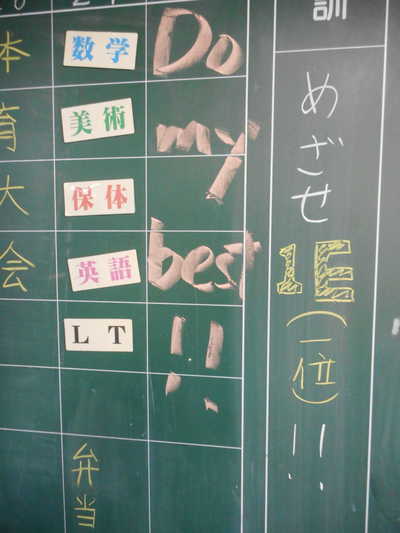 訓
めざせ
1E
(一位)!!
Do
my
best
!!
数学
美術
保体
英語
LT
弁当
本
育
大
会